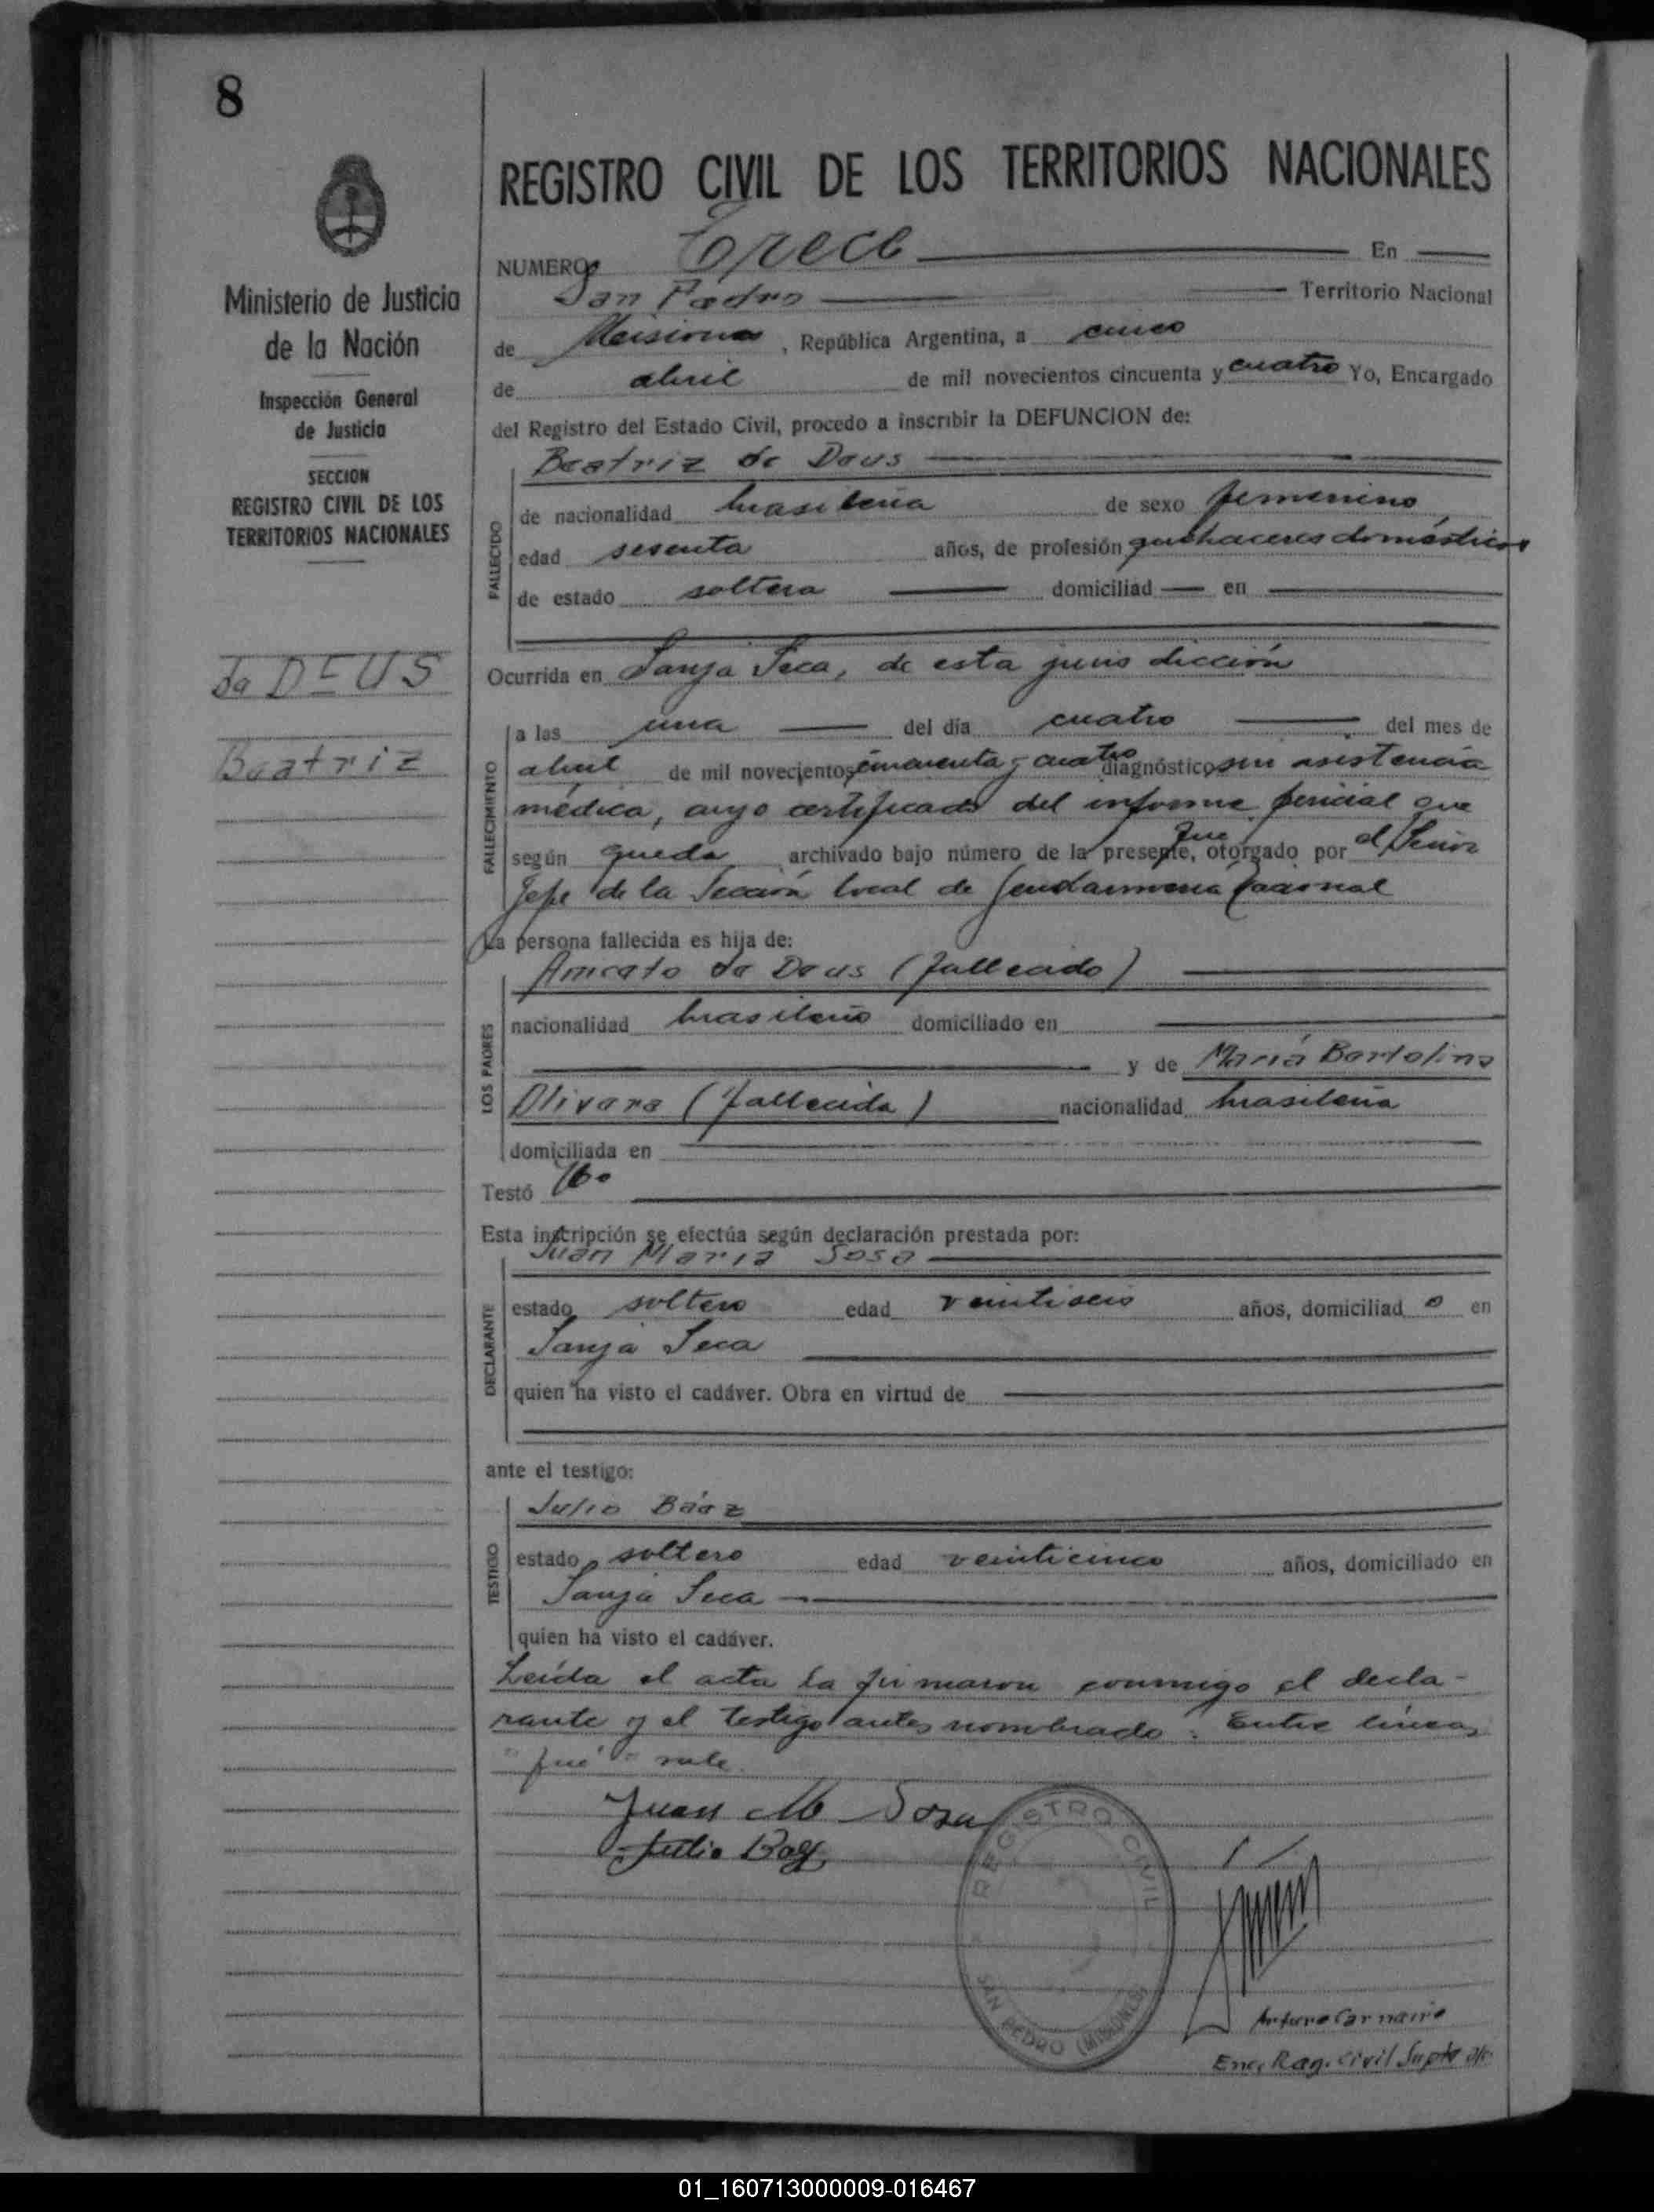 8
REGISTRO CIVIL DE LOS TERRITORIOS NACIONALES
Ministerio de Justicia
de la Nación
Inspección General
de Justicia
SECCION
REGISTRO CIVIL DE LOS
TERRITORIOS NACIONALES
de DEUS
Beatriz
NUMERO Trece En
San Pedro Territorio Nacional
de Misiones, República Argentina, a cinco
de abril de mil novecientos cincuenta y cuatro Yo, Encargado
del Registro del Estado Civil, procedo a inscribir la DEFUNCION de:
Beatriz de Deus
FALLECIDO
de nacionalidad brasileña de sexo femenino
edad sesenta años, de profesión quehaceres domésticos
de estado soltera domiciliad en
Ocurrida en Sanja Seca, de esta jurisdicción
FALLECIMIENTO
a las una del día cuatro del mes de
abril de mil novecientos cincuenta y cuatro diagnóstico sin asistencia
médica, cuyo certificado del informe pericial que
según queda archivado bajo número de la presente, fue otorgado por el Señor
Jefe de la Sección local de Gendarmeria Nacional
La persona fallecida es hija de:
LOS PADRES
de Deus (fallecido)
nacionalidad brasileño domiciliado en
y de María Bertolina
Olivera (fallecida) nacionalidad brasileña
domiciliada en
Testó No
Esta inscripción se efectúa según declaración prestada por:
Juan María Sosa
DECLARANTE
estado soltero edad veintiseis años, domiciliad o en
Sanja Seca
quien ha visto el cadáver. Obra en virtud de
ante el testigo:
Julio Báez
TESTIGO
estado soltero edad veinticinco años, domiciliado en
Sanja Seca
quien ha visto el cadáver.
Leída el acta la firmaron conmigo el decla-
rante y el testigo antes nombrado. Entre líneas
"fué" vale.
Juan M Sosa
Julio Baez
REGISTRO CIVIL
SAN PEDRO (MISIONES)
Arturo Carneiro
Enc. Reg. Civil Supte
01_160713000009-016467